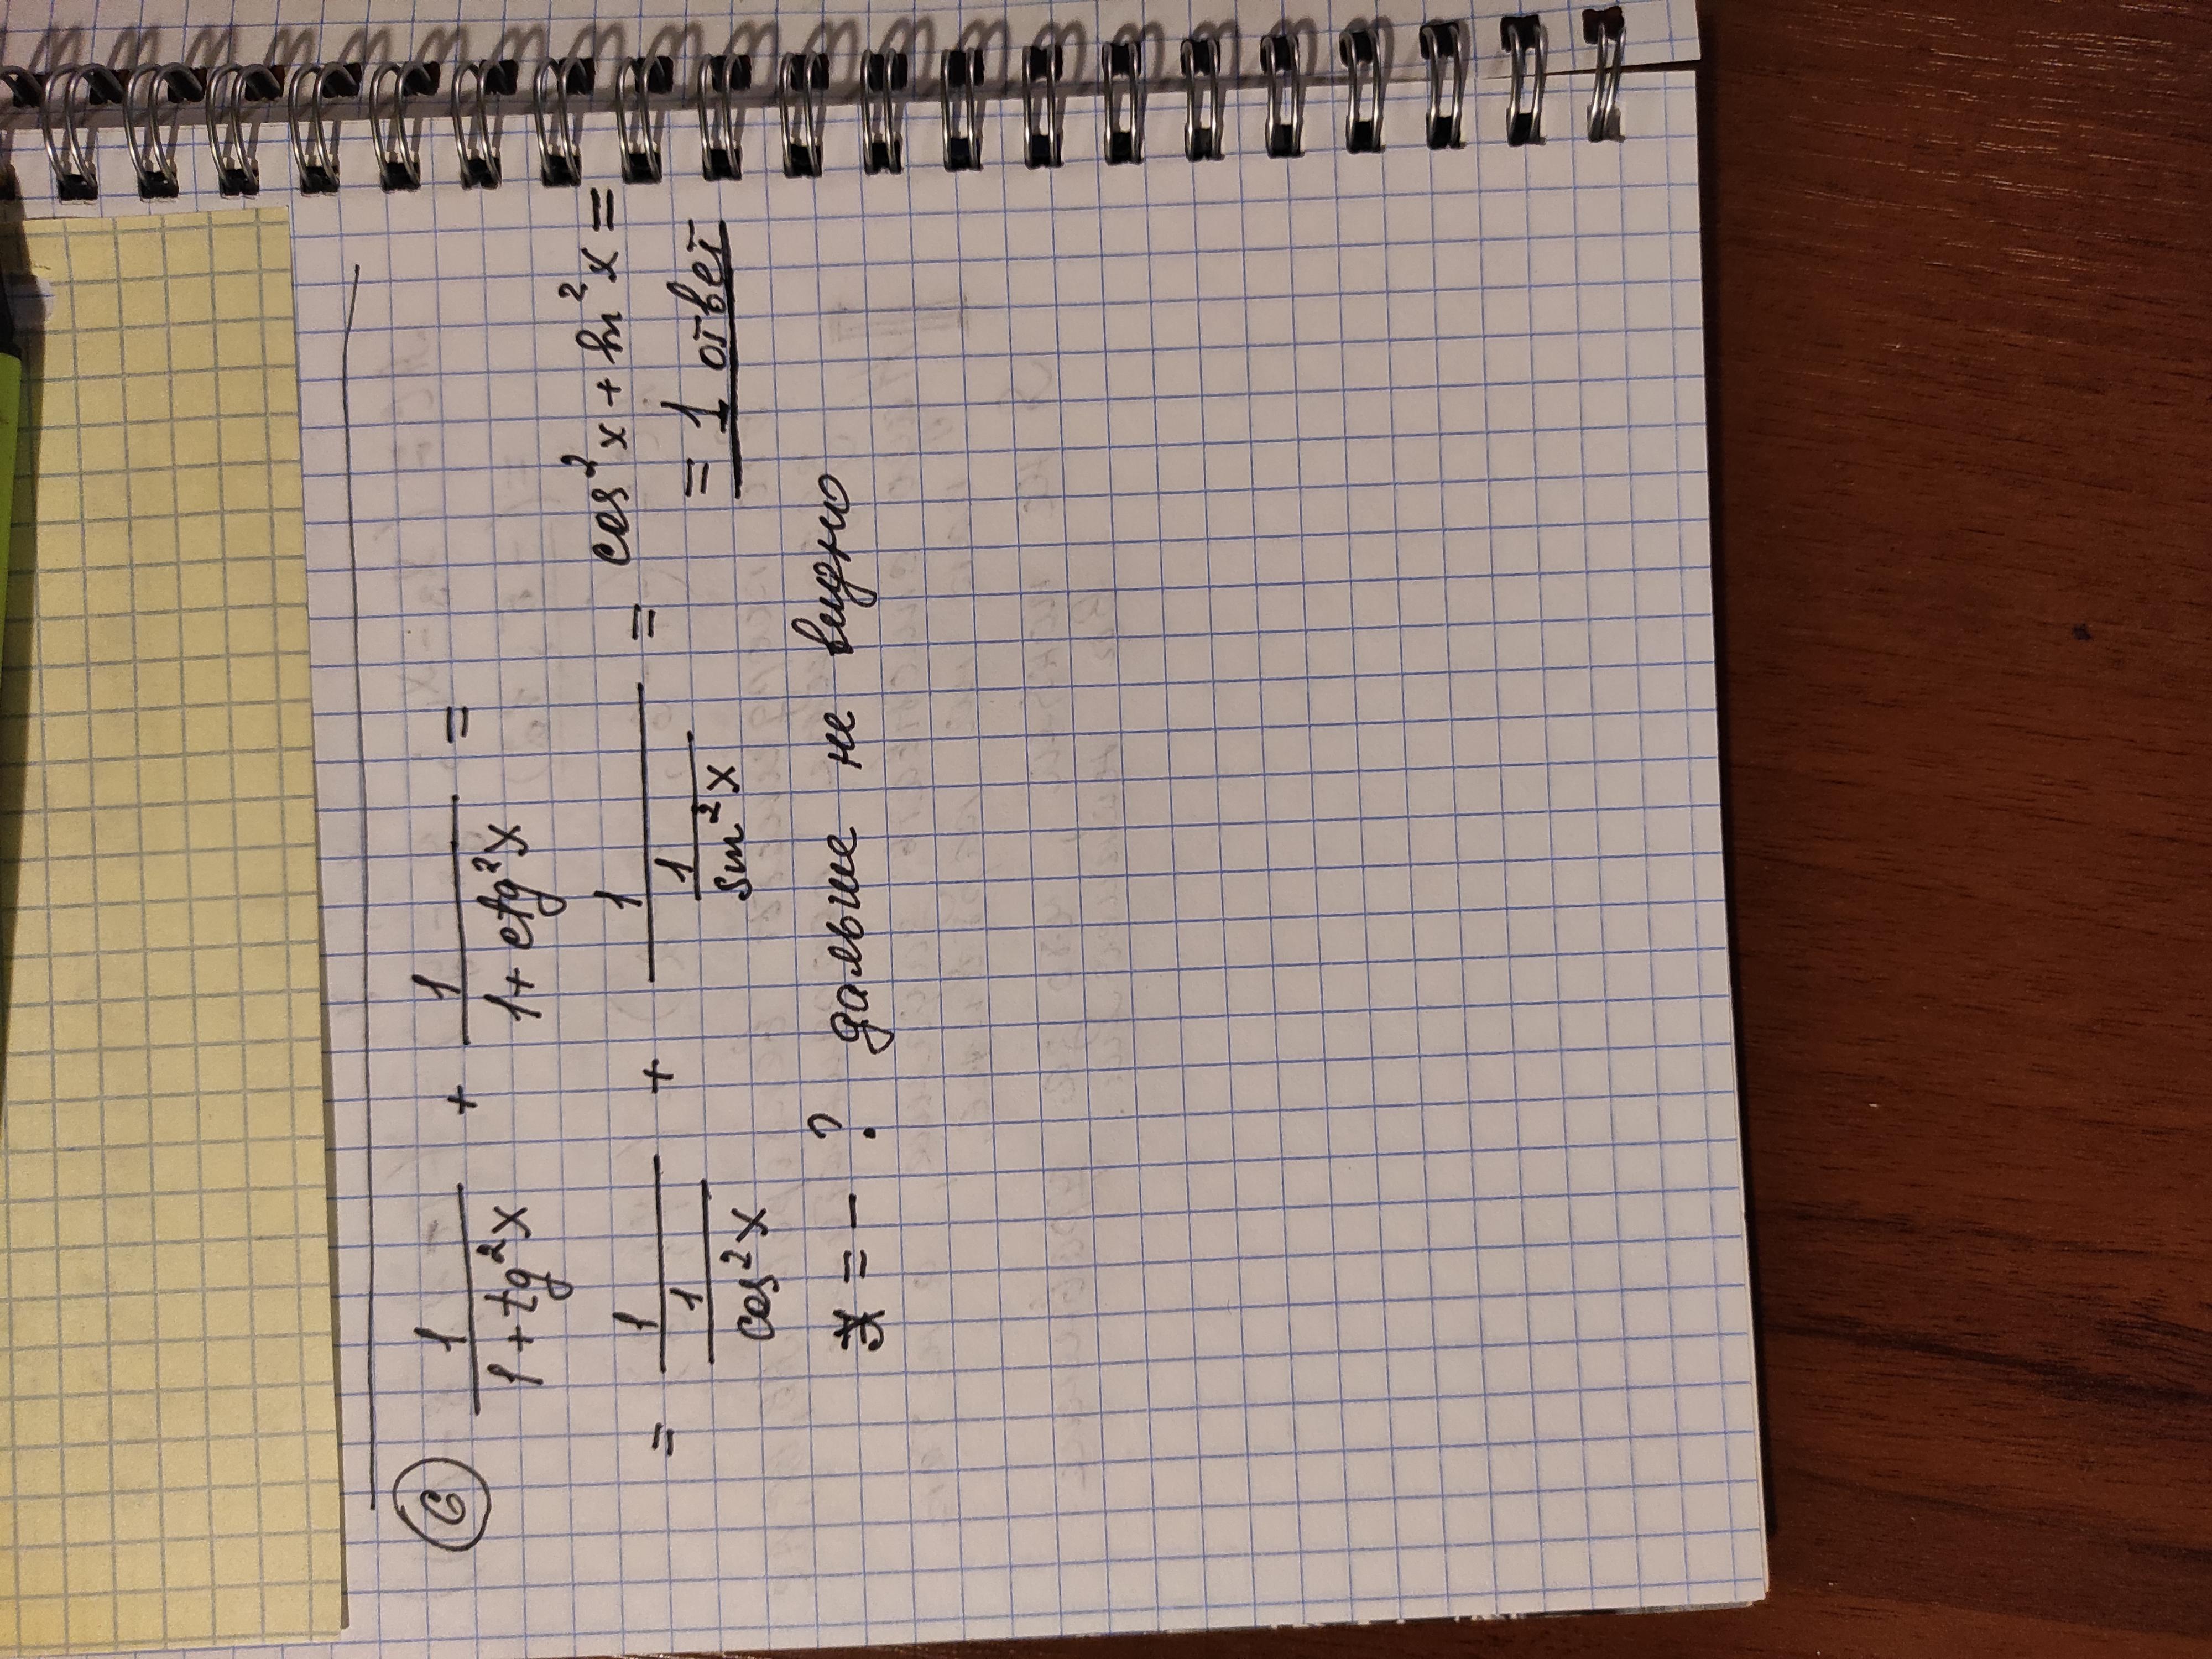 6
1/(1+tg²x) + 1/(1+ctg²x) =
= 1/(1/cos²x) + 1/(1/sin²x) = cos²x + sin²x =
= 1 ответ
x = – ? дальше не видно